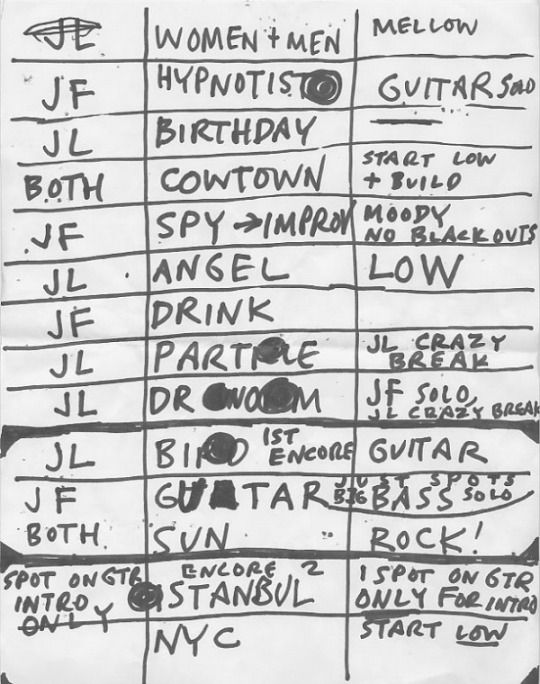 JL WOMEN + MEN MELLOW
JF HYPNOTIST GUITAR SOLO
JL BIRTHDAY
BOTH COWTOWN START LOW
+ BUILD
JF SPY → IMPROV MOODY
NO BLACKOUTS
JL ANGEL LOW
JF DRINK
JL PARTICLE JL CRAZY
BREAK
JL DR WORM JF SOLO,
JL CRAZY BREAK
JL BIRD 1ST
ENCORE GUITAR
JF GUITAR JUST SPOTS
BIG BASS SOLO
BOTH SUN ROCK!
ENCORE 2
SPOT ON GTR
INTRO
ONLY
ISTANBUL
1 SPOT ON GTR
ONLY FOR INTRO
NYC START LOW